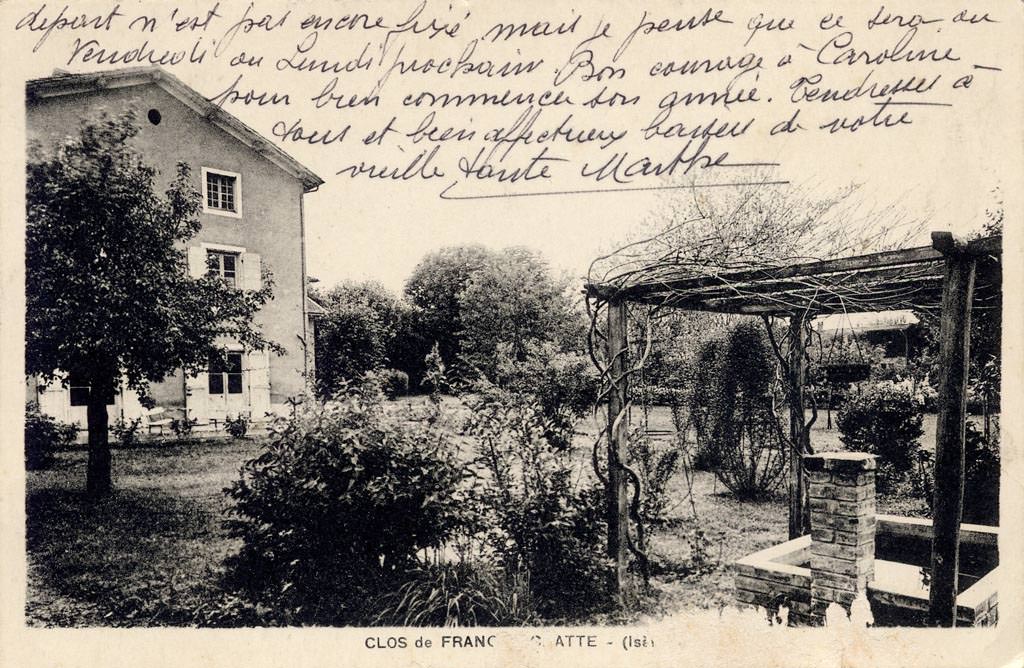 départ n'est pas encore fixé mais je pense que ce sera ou
Vendredi ou Lundi prochain. Bon courage à Caroline
pour bien commencer son année. Tendresses à
tous et bien affectueux baisers de votre
vieille tante Marthe
CLOS de FRANC ATTE - (Isè